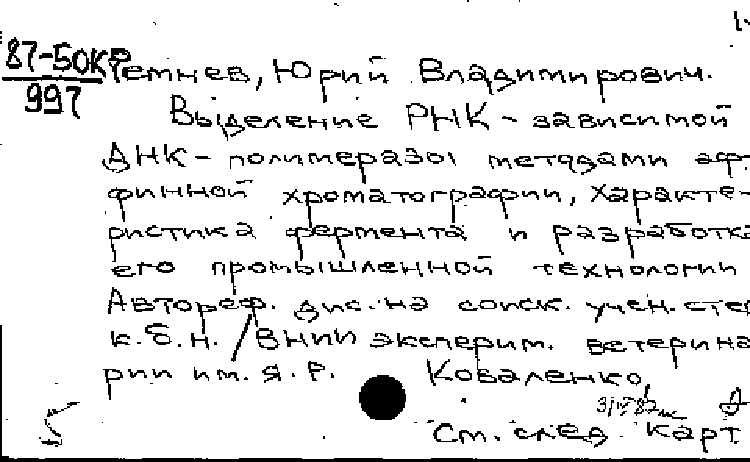 87-50КР
997
Ремнев, Юрий Владимирович.
Выделение РНК-зависимой
ДНК-полимеразы методами аф-
финной хроматографии, характе-
ристика фермента и разработка
его промышленной технологии
Автореф. дис. на соиск. учен. сте
к.б.н. / ВНИИ эксперим. ветерина
рии им. Я.Р. Коваленко,
См. след. карт